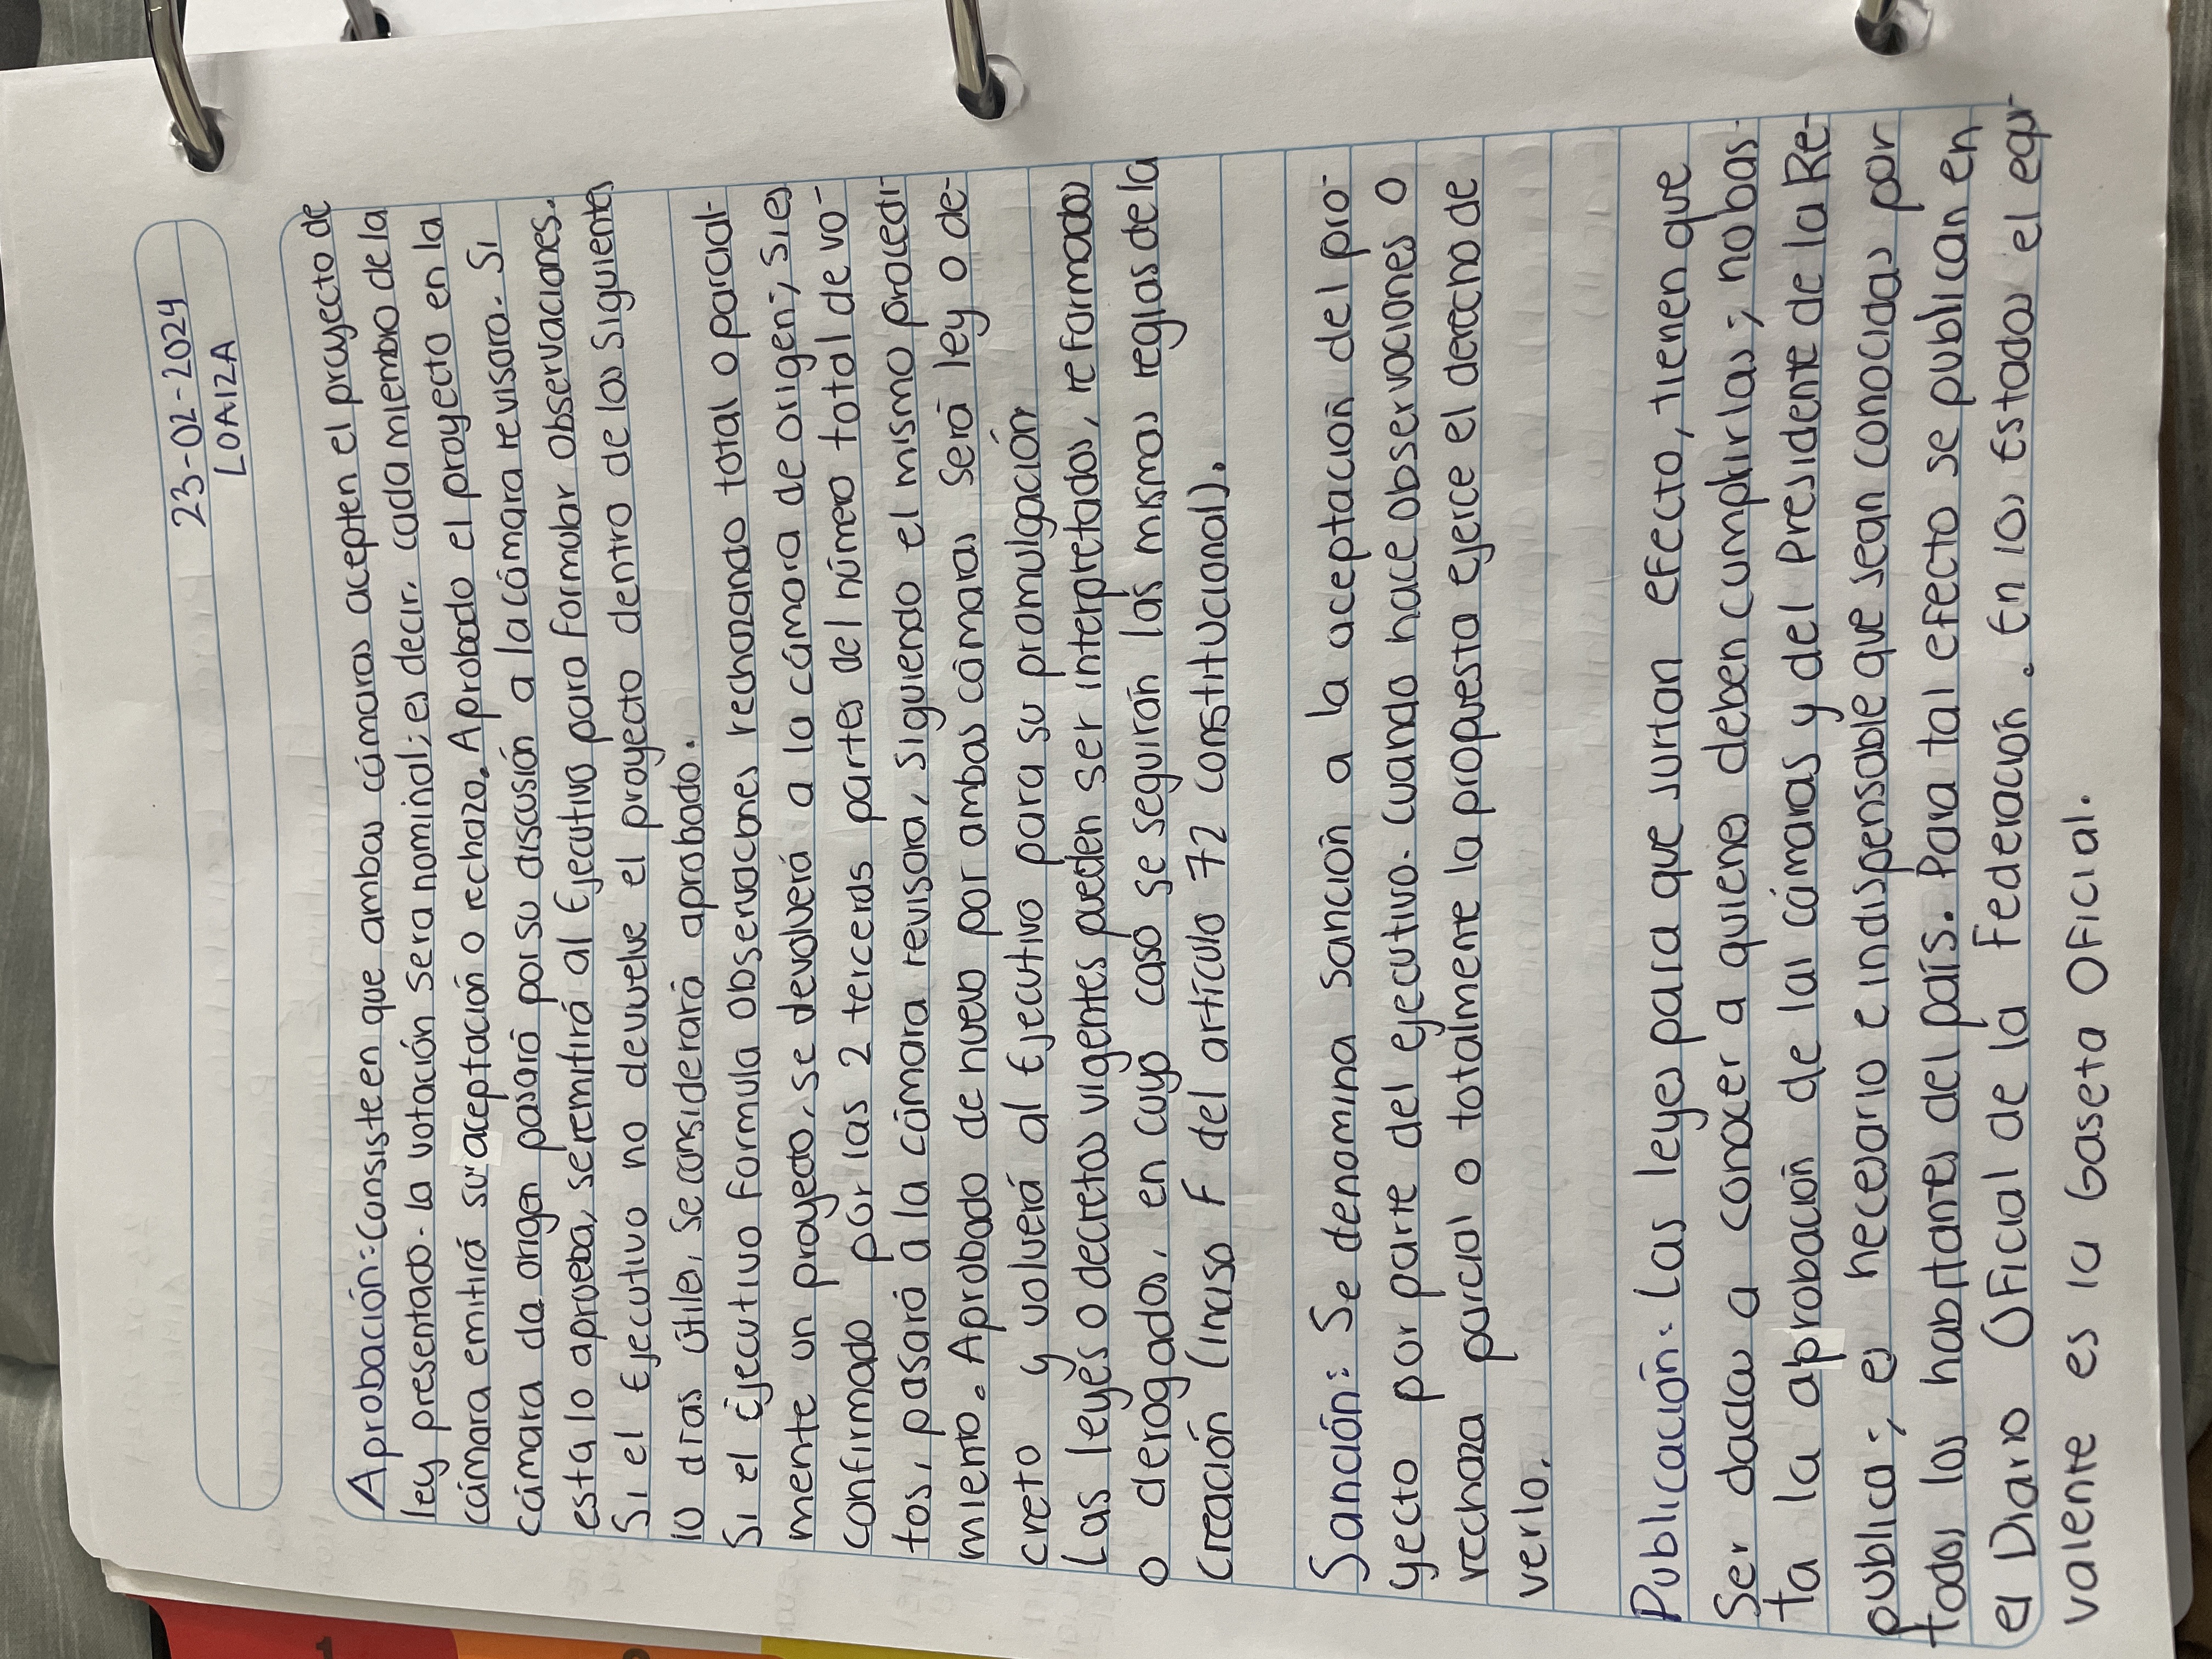 23-02-2024
LOAIZA
Aprobación: Consiste en que ambas cámaras acepten el proyecto de
ley presentado. la votación sera nominal; es decir, cada miembro de la
cámara emitirá su aceptación o rechazo. Aprobado el proyecto en la
cámara de origen pasará por su discusión a la cámara revisora. Si
esta lo aprueba, se remitirá al Ejecutivo para formular observaciones.
Si el Ejecutivo no devuelve el proyecto dentro de los siguientes
10 días útiles, se considerará aprobado.
Si el Ejecutivo formula observaciones rechazando total o parcial-
mente un proyecto, se devolverá a la cámara de origen; si es
confirmado por las 2 terceras partes del número total de vo-
tos, pasará a la cámara revisora, siguiendo el mismo procedi-
miento. Aprobado de nuevo por ambas cámaras será ley o de-
creto y volverá al Ejecutivo para su promulgación
Las leyes o decretos vigentes pueden ser interpretados, reformados
o derogados, en cuyo caso se seguirán las mismas reglas de la
creación (Inciso F del artículo 72 constitucional).
Sanción: Se denomina sanción a la aceptación del pro-
yecto por parte del ejecutivo. Cuando hace observaciones o
rechaza parcial o totalmente la propuesta ejerce el derecho de
verlo.
Publicación: Las leyes para que surtan efecto, tienen que
Ser dadas a conocer a quienes deben cumplirlas; no bas-
ta la aprobación de las cámaras y del Presidente de la Re-
pública; es necesario e indispensable que sean conocidas por
todos los habitantes del país. Para tal efecto se publican en
el Diario Oficial de la Federación. En los Estados el equi
valente es la Gaseta Oficial.